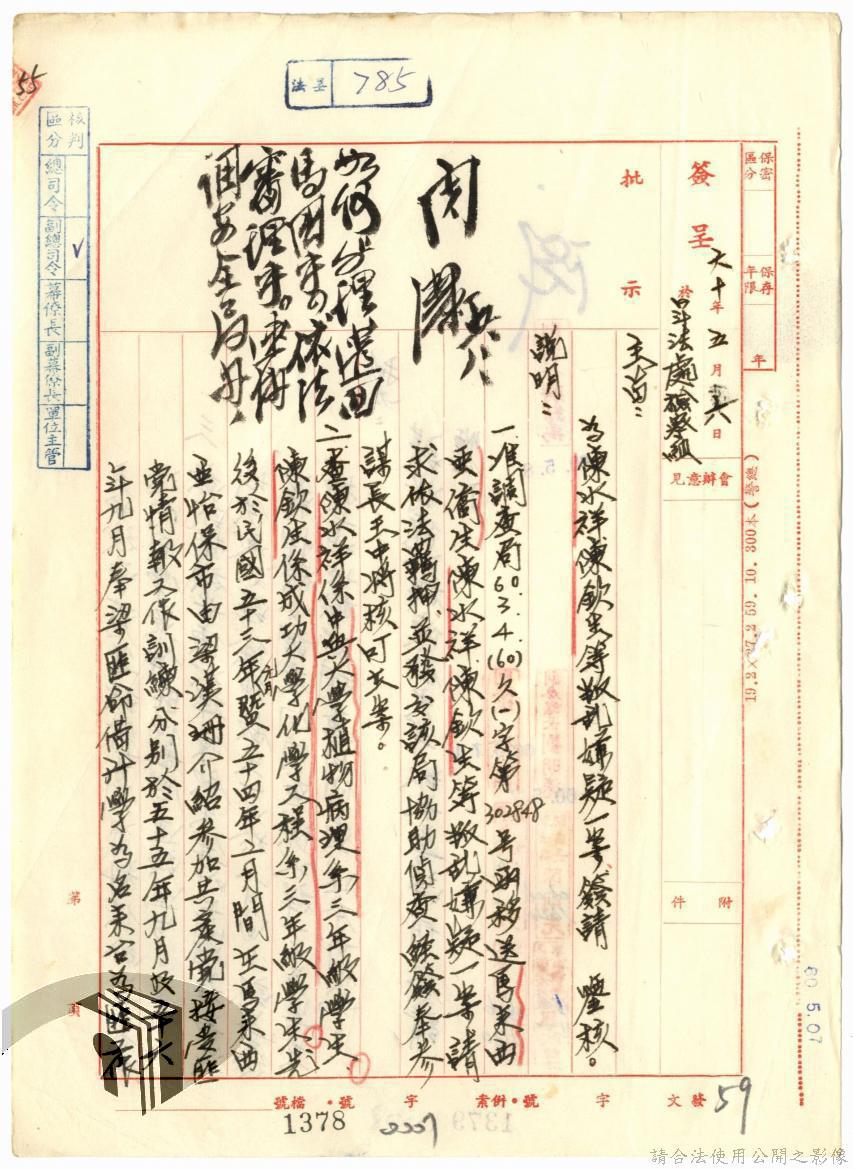 55
法呈 785
保密區分
保存年限 年
簽呈 六十年五月六日
於軍法處檢察組
會辦意見
附件
批示
閱
主旨：
為陳水祥陳欽生等叛亂嫌疑一案簽請 鑒核。
說明：
一、准調查局60.3.4.(60)久(一)字第302848号函移送馬來西
亞僑生陳水祥陳欽生等叛亂嫌疑一案請
求依法羈押並發交該局協助偵查經簽奉參
謀長王中將核可在案。
二、查陳水祥係中興大學植物病理系三年級學生
陳欽生係成功大學化學工程系三年級學生先
後於民國五十三年元月暨五十四年二月間在馬來西
亞怡保市由梁漢珊介紹參加共產黨接受匪
黨情報工作訓練分別於五十五年九月及五十六
年九月奉梁匪命借升學為名來台為匪
如何辦理
馬國 依法
審理
核判區分
總司令
副總司令 V
幕僚長
副幕僚長
單位主管
19.3×27.2 59. 10. 300本(警總)
60 5.07
第 頁
發文 字 號・併案 字 號・檔號
59
1378
0007
請合法使用公開之影像